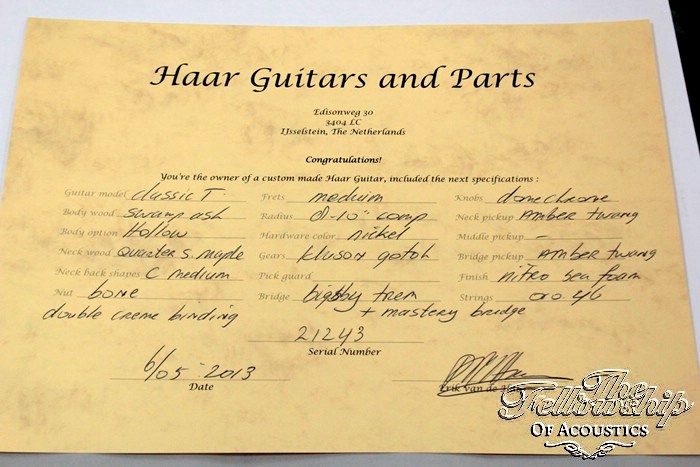 Haar Guitars and Parts
Edisonweg 30
3404 LC
IJsselstein, The Netherlands
Congratulations!
You're the owner of a custom made Haar Guitar, included the next specifications :
Guitar model classic T Frets medium Knobs dome chrome
Body wood swamp ash Radius 9-10" comp Neck pickup AMber twang
Body option Hollow Hardware color nickel Middle pickup -
Neck wood Quarter S. maple Gears kluson gotoh Bridge pickup AMber twang
Neck back shapes C medium Pick guard Finish nitro sea foam
Nut bone Bridge bigsby trem Strings 010.46
double creme binding + mastery bridge
21243
Serial Number
6/05-2013
Date Erik van de Haar
The
Fellowship
Of Acoustics